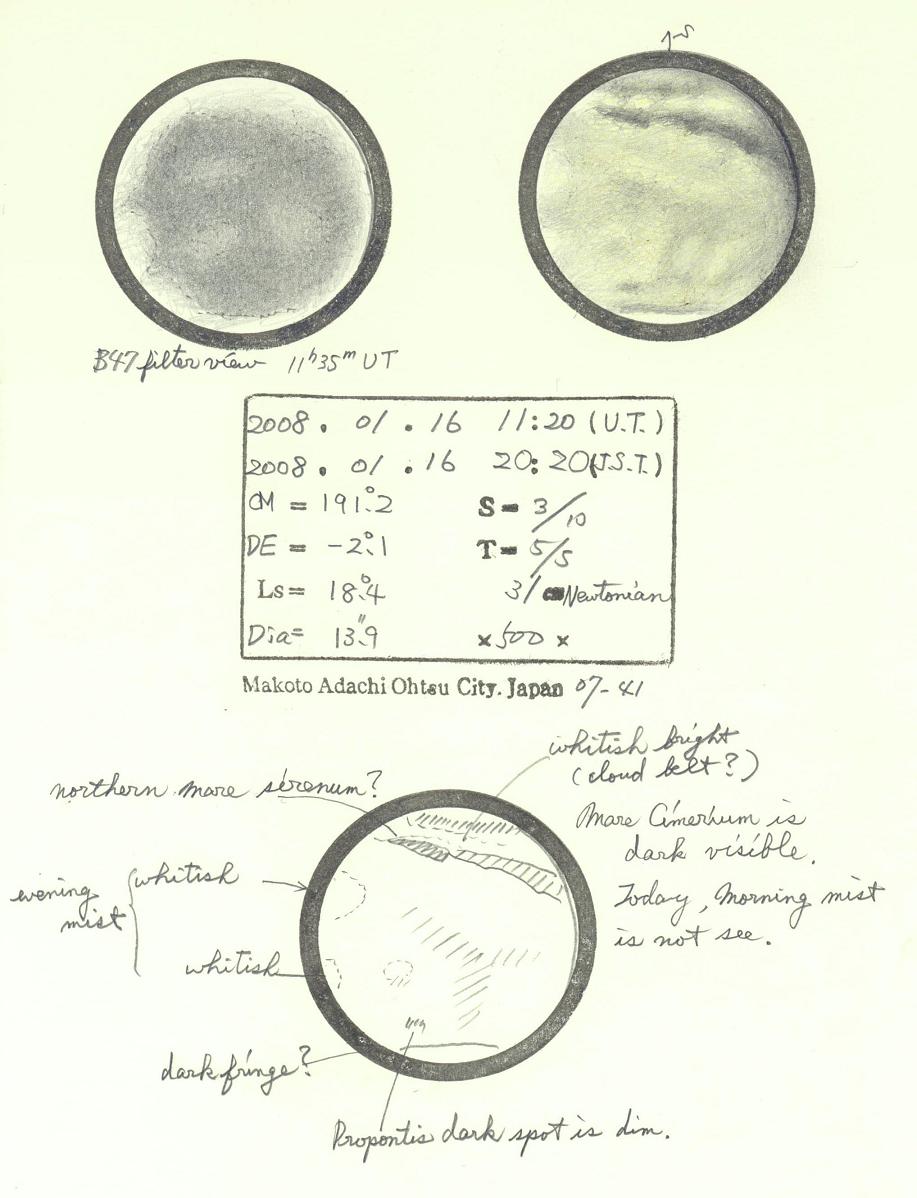 S
B47 filter view 11h35m UT
2008. 01. 16 11:20 (U.T.)
2008. 01. 16 20:20 (J.S.T.)
CM = 191.°2 S = 3/10
DE = -2.°1 T = 5/5
Ls = 18.°4 31 cm Newtonian
Dia = 13."9 × 500 ×
Makoto Adachi Ohtsu City. Japan 07-41
whitish bright
(cloud belt?)
northern mare sirenum?
Mare Cimerium is
dark visible.
evening mist
whitish
Today, Morning mist
is not see.
whitish
dark fringe?
Propontis dark spot is dim.